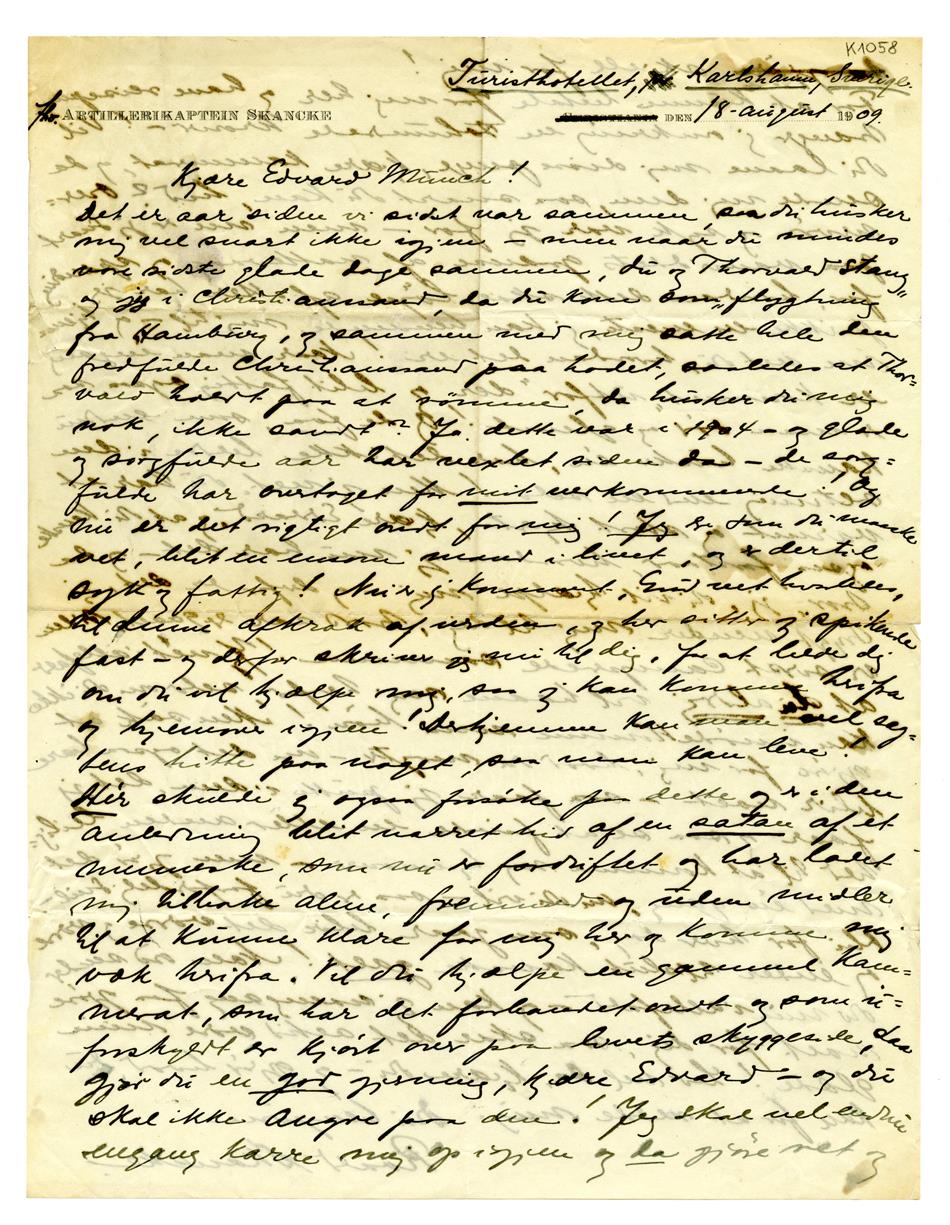 K1058
Turisthotellet, Karlshamn, Sverige.
Thv. ARTILLERIKAPTEIN SKANCKE DEN 18-august 1909.
Kjære Edvard Munch!
Det er aar siden vi sidst var sammen, saa du husker
mig vel snart ikke igjen – men naar du mindes
vore sidste glade dage sammen, du og Thorvald Stang
og jeg i Christiansand, da du kom som „flygtning"
fra Hamburg, og sammen med mig satte hele den
fredfulde Christiansand paa hodet, saaledes at Thor-
vald holdt paa at rømme, da husker du mig
nok, ikke sandt? Ja dette var i 1904 – og glade
og sorgfulde aar har vexlet siden da – de sorg=
fulde har overtaget for mit vedkommende! Og
nu er det rigtigt ondt for mig! Jeg er som du maaske
vet, blit en ensom mand i livet, og er dertil
syk og fattig! Nu er jeg kommet, Gud vet hvorledes,
til denne afkrok af verden, og her sitter jeg spikende
fast – og derfor skriver jeg nu til dig, for at bede dig
om du vil hjælpe mig, saa jeg kan komme herifra
og hjemover igjen! Derhjemme kan man da vel sag-
tens hitte paa noget, saa man kan leve!
Her skulde jeg ogsaa forsøke paa dette og er i den
anledning blit narret hid af en satan af et
menneske, som nu er fordriftet og har ladet
mig tilbake alene, fremmed og uden midler
til at kunne klare for mig her og komme mig
væk herifra. Vil du hjælpe en gammel kam=
merat, som har det forbandet ondt og som u=
forskyldt er kjørt over paa livets skyggeside, saa
gjør du en god gjerning, kjære Edvard – og du
skal ikke angre paa den! Jeg skal vel endnu
engang karre mig op igjen og da gjøre ret og